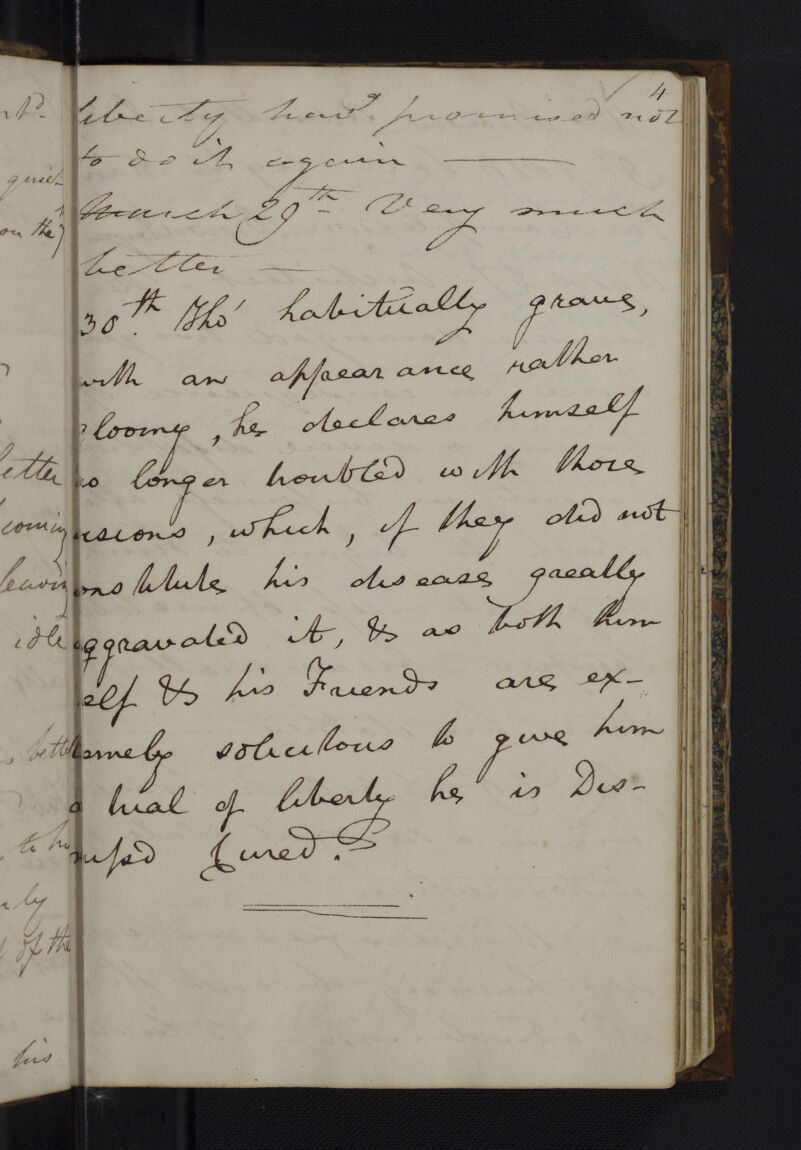 4
liberty hav.g promised not
to do it again —
March 29th Very much
better —
30th. Tho' habitually grave,
with an appearance rather
gloomy, he declares himself
no longer troubled with those
visions, which, if they did not
constitute his disease greatly
aggravated it, & as both him
self & his Friends are ex-
tremely solicitous to give him
a trial of liberty he is Dis-
missd Cured.
quiet
on the
letter
coming
leaving
idle
better
to
of the
his